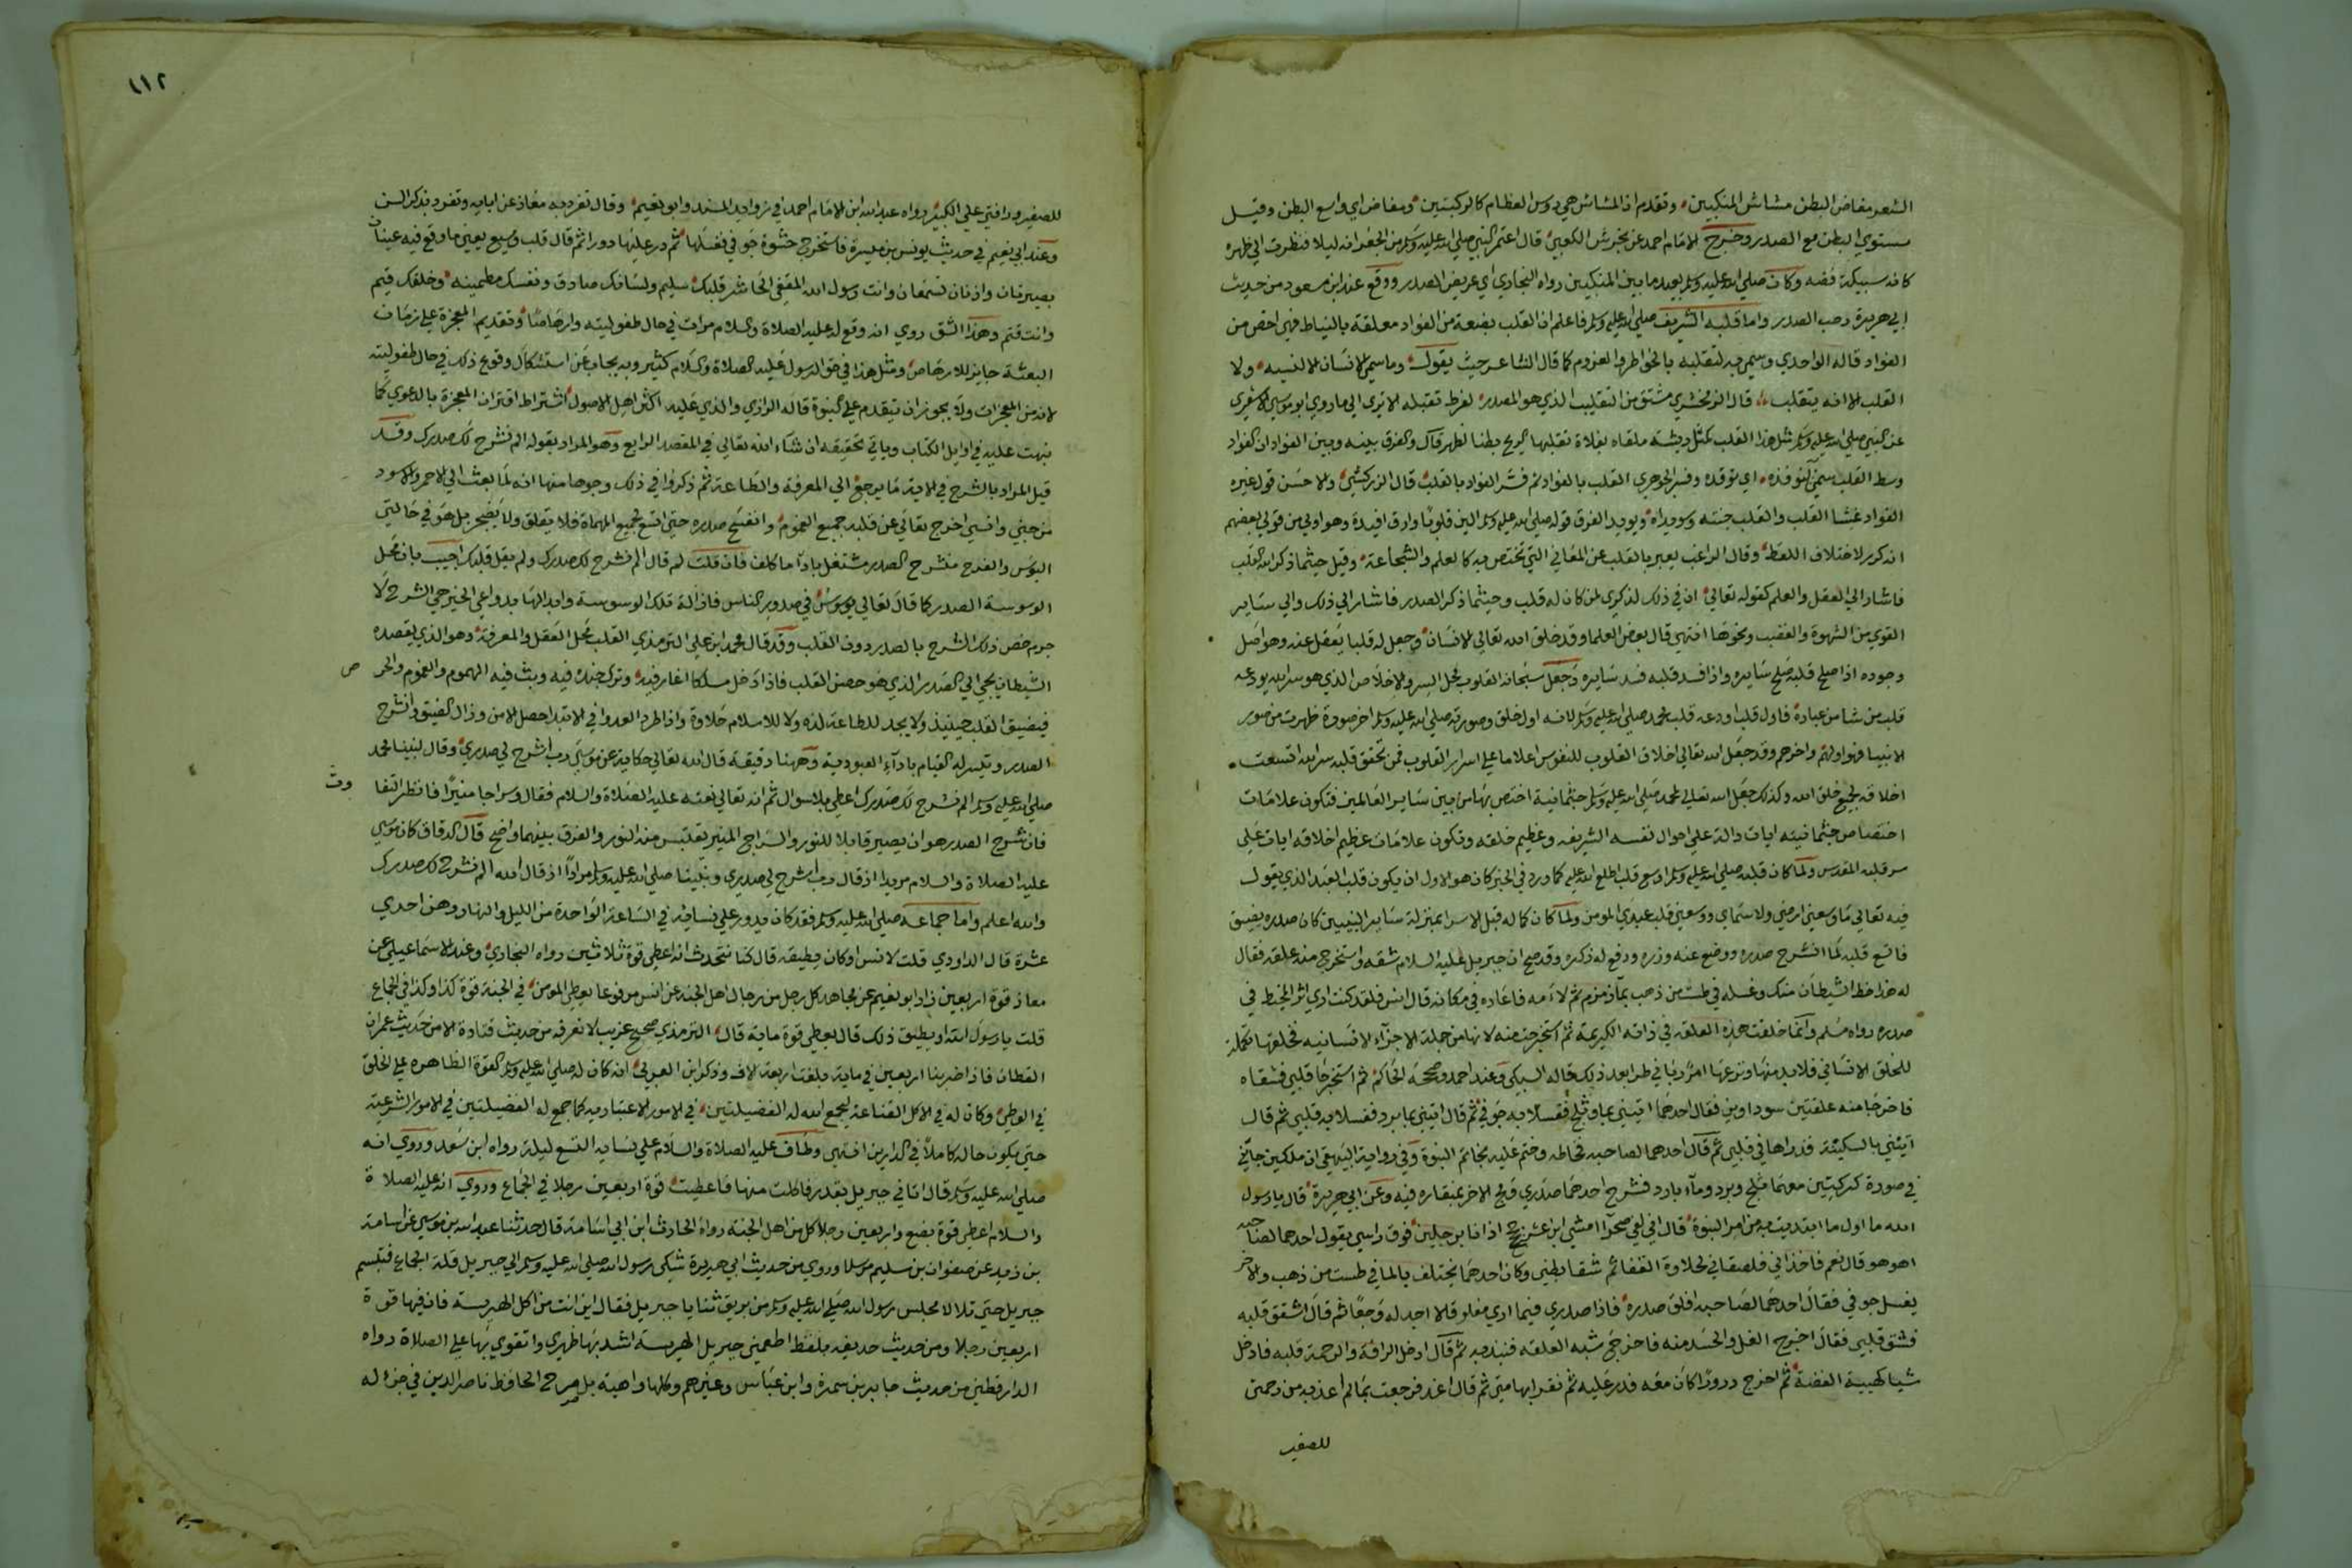 الشعر مفاض البطن مشاش المنكبين وتقدم ان المشاش هي روس العظام كالركبتين ومفاض اي واسع البطن وقيل
مستوي البطن مع الصدر وخرج الامام احمد عن محرش الكعبي قال اعتمر النبي صلي الله عليه وسلم من الجعرانه ليلا فنظرت الي ظهره
كانه سبيكة فضه وكان صلي الله عليه وسلم بعيد ما بين المنكبين رواه البخاري اي عريض الصدر ووقع عند ابن سعد من حديث
ابي هريرة رحب الصدر واما قلبه الشريف صلي الله عليه وسلم فاعلم ان القلب بضعة من الفواد معلقة بالنياط فهي اخص من
الفواد قاله الواحدي وسمي به لتقلبه بالخواطر والعزوم كما قال الشاعر حيث يقول وما سمي الانسان الا لنسيه ولا
القلب الا انه يتقلب قال الزمخشري مشتق من التقليب الذي هو المصدر لفرط تقبله الا تري الي ما روي ابو موسي الاشعري
عن النبي صلي الله عليه وسلم مثل هذا القلب كمثل ريشة ملقاه بفلاة تقلبها الريح بطنا لظهر قال والفرق بينه وبين الفواد ان الفواد
وسط القلب سمي لتوفده اي توقده وفسر الجوهري القلب بالفواد ثم فسر الفواد بالقلب قال الزركشي والاحسن قول غيره
الفواد غشا القلب والقلب حبته وسويداه ويويد الفرق قوله صلي الله عليه وسلم الين قلوبا وارق افيدة وهو اولي من قول بعضهم
انه كرر لاختلاف اللفظ وقال الراغب يعبر بالقلب عن المعاني التي تختص به كالعلم والشجاعة وقيل حيثما ذكر الله القلب
فاشار الي العقل والعلم كقوله تعالي ان في ذلك لذكري لمن كان له قلب وحيثما ذكر الصدر فاشار الي ذلك والي ساير
القوي من الشهوة والغضب ونحوها انتهي قال بعض العلما وقد خلق الله تعالي للانسان وجعل له قلبا يعقل عنه وهو اصل
وجوده اذا صلح قلبه صلح سايره واذا فسد قلبه فسد سايره وجعل سبحانه القلوب محل السر والاخلاص الذي هو سر الله يودعه
قلب من شا من عباده فاول قلب اودعه قلب محمد صلي الله عليه وسلم لانه اول خلق وصورته صلي الله عليه وسلم اخر صورة ظهرت من صور
الانبيا فهو اولهم واخرهم وقد جعل الله تعالي اخلاق القلوب للنفوس اعلاما علي اسرار القلوب فمن تحقق قلبه سر الله اتسعت
اخلاقه لجميع خلق الله وكذلك جعل الله تعالي لمحمد صلي الله عليه وسلم جثمانية اختص بها من بين ساير العالمين فتكون علامات
اختصاص جثمانيته ايات دالة علي احوال نفسه الشريفه وعظيم خلقه وتكون علامات عظيم اخلاقه ايات علي
سر قلبه المقدس ولما كان قلبه صلي الله عليه وسلم اوسع قلب اطلع الله عليه كما ورد في الخبر كان هو الاول ان يكون قلب العبد الذي يقول
فيه تعالي ما وسعني ارضي ولا سماي ووسعني قلب عبدي المومن ولما كان كماله قبل الاسرا بمنزلة ساير النبيين كان صدره يضيق
فاتسع قلبه لما انشرح صدره ووضع عنه وزره ورفع له ذكره وقد صح ان جبريل عليه السلام شقه واستخرج منه علقة فقال
له هذا حظ الشيطان منك وغسله في طست من ذهب بمآ زمزم ثم لأمه فاعاده في مكانه قال انس فلقد كنت اري اثر المخيط في
صدره رواه مسلم وانما خلقت هذه العلقة في ذاته الكريمة ثم استخرجت منه لانها من جملة الاجزآء الانسانيه فخلقها تكملة
للخلق الانساني فلابد منها ونزعها امر رباني طرا بعد ذلك قاله السبكي وعند احمد وصححه الحاكم ثم استخرجا قلبي فشقاه
فاخرجا منه علقتين سوداوين فقال احدهما ايتيني بماو ثلج فغسلا به جوفي ثم قال ايتيني بما برد فغسلا به قلبي ثم قال
ايتيني بالسكينة فذراها في قلبي ثم قال احدهما لصاحبه فخاطه وختم عليه بخاتم النبوة وفي رواية البيهقي ان ملكين جاآني
في صورة كركيين معهما ثلج وبرد ومآء بارد فشرح احدهما صدري ومج الاخر بمنقاره فيه وعن ابي هريرة قال يا رسول
الله ما اول ما ابتديت به من امر النبوة قال اني لفي صحرآ امشي ابن عشر حجج اذا انا برجلين فوق راسي يقول احدهما لصاحبه
اهو هو قال نعم فاخذاني فلصقاني لحلاوة القفا ثم شقا بطني وكان احدهما يختلف بالما في طست من ذهب والاخر
يغسل جوفي فقال احدهما لصاحبه افلق صدره فاذا صدري فيما اري مفلو قلا اجد له وجعا ثم قال اشقق قلبه
فشق قلبي فقال اخرج الغل والحسد منه فاخرج شبه العلقه فنبذ به ثم قال ادخل الرافة والرحمة قلبه فادخل
شيا كهيية الفضة ثم اخرج درورًا كان معه فذر عليه ثم نقر ابهامي ثم قال اغد فرجعت بما لم اغد به من رحمتي
للصغير
١١٢
للصغير ورافتي علي الكبير رواه عبد الله ابن الامام احمد في زوايد المسند وابو نعيم وقال تفرد به معاذ عن ابايه وتفرد بذكر السن
وعند ابي نعيم في حديث يونس بن ميسرة فاستخرج حشوة جوفي فغسلها ثم ذر عليها دورا ثم قال قلب وكيع يعي ما وقع فيه عينان
بصيرتان واذنان تسمعان وانت رسول الله المقفي الحاشر قلبك سليم ولسانك صادق ونفسك مطمينه وخلقك قيم
وانت قثم وهذا الشق روي انه وقع له عليه الصلاة والسلام مرات في حال طفوليته وارهاصا وتقديم المعجزة علي زمان
البعثة جايز للارهاص ومثل هذا في حق الرسول عليه الصلاة والسلام كثير وبه يجاب عن استشكال وقوع ذلك في حال طفوليته
لانه من المعجزات ولا يجوز ان يتقدم علي النبوة قاله الرازي والذي عليه اكثر اهل الاصول اشتراط اقتران المعجزة بالدعوي كما
نبهت عليه في اوايل الكتاب وياتي تحقيقه ان شآء الله تعالي في المقصد الرابع وهو المراد بقوله الم نشرح لك صدرك وقد
قيل المراد بالشرح في الاية ما يرجع الي المعرفة والطاعة ثم ذكروا في ذلك وجوها منها انه لما بعث الي الاحمر والاسود
من جني وانسي اخرج تعالي عن قلبه جميع الهموم وانفسح صدره حتي اتسع لجميع المهماة فلا يقلق ولا يضجر بل هو في حالتي
البوس والفرح منشرح الصدر مشتغل بادآ ما كلف فان قلت لم قال الم نشرح لك صدرك ولم يقل قلبك اجيب بان محل
الوسوسة الصدر كما قال تعالي يوسوس في صدور الناس فازالة تلك الوسوسة وابدالها بدواعي الخير هي الشرح لا
جرم خص ذلك الشرح بالصدر دون القلب وقد قال محمد ابن علي الترمذي القلب محل العقل والمعرفة وهو الذي يقصده
الشيطان يجي الي الصدر الذي هو حصن القلب فاذا دخل مسلكا اغار فيه وترك جنده فيه وبث فيه الهموم والغموم والحر
ص
فيضيق القلب حينيذ ولا يجد للطاعة لذه ولا للاسلام حلاوة واذا طرد العدو في الابتدا حصل الامن وزال الضيق وانشرح
الصدر وتيسر له القيام بادآء العبودية وههنا دقيقة قال الله تعالي حكاية عن موسي رب اشرح لي صدري وقال لنبينا محمد
صلي الله عليه وسلم الم نشرح لك صدرك اعطي بلا سوال ثم انه تعالي نعته عليه الصلاة والسلام فقال وسراجا منيرا فانظر التفا
وت
فان شرح الصدر هو ان يصير قابلا للنور والسراج المنير يقتبس منه النور والفرق بينهما واضح قال الدقاق كان موسي
عليه الصلاة والسلام مريدا اذ قال رب اشرح لي صدري ونبينا صلي الله عليه وسلم مرادا اذ قال الله الم نشرح لك صدرك
والله اعلم واما جماعه صلي الله عليه وسلم فقد كان يدور علي نسايه في الساعة الواحدة من الليل والنهار وهن احدي
عشرة قال الداودي قلت لانس اوكان يطيقه قال كنا نتحدث انه اعطي قوة ثلاثين رواه البخاري وعند الاسماعيلي عن
معاذ قوة اربعين زاد ابو نعيم عن مجاهد كل رجل من رجال اهل الجنة عن انس مرفوعا يعطي المومن في الجنة قوة كذا وكذا في الجماع
قلت يا رسول الله او يطيق ذلك قال يعطي قوة ماية قال الترمذي صحيح غريب لا نعرفه من حديث قتادة الا من حديث عمران
القطان فاذا ضربنا اربعين في ماية بلغت اربعة الاف وذكر ابن العربي انه كان له صلي الله عليه وسلم القوة الظاهره علي الخلق
في الوطي وكان له في الاكل القناعة ليجمع الله له الفضيلتين في الامور الاعتباديه كما جمع له الفضيلتين في الامور الشرعية
حتي يكون حاله كاملا في الدارين انتهي وطاف عليه الصلاة والسلام علي نسايه التسع ليلة رواه ابن سعد وروي انه
صلي الله عليه وسلم قال اتاني جبريل بقدر فاكلت منها فاعطيت قوة اربعين رجلا في الجماع وروي انه عليه الصلاة
والسلام اعطي قوة بضع واربعين رجلا كل من اهل الجنة رواه الحارث ابن ابي اسامة قال حدثنا عبد الله بن موسي عن اسامة
بن زيد عن صفوان بن سليم مرسلا وروي من حديث ابي هريرة شكي رسول الله صلي الله عليه وسلم الي جبريل قلة الجماع فتبسم
جبريل حتي تلالا مجلس رسول الله صلي الله عليه وسلم من بريق ثنايا جبريل فقال اين انت من اكل الهريسة فان فيها قوة
اربعين رجلا ومن حديث حذيفه بلفظ اطعمني جبريل الهريسة اشد بها ظهري واتقوي بها علي الصلاة رواه
الدارقطني من حديث جابر بن سمرة وابن عباس وغيرهم وكلها واهية بل صرح الحافظ ناصر الدين في جزء له